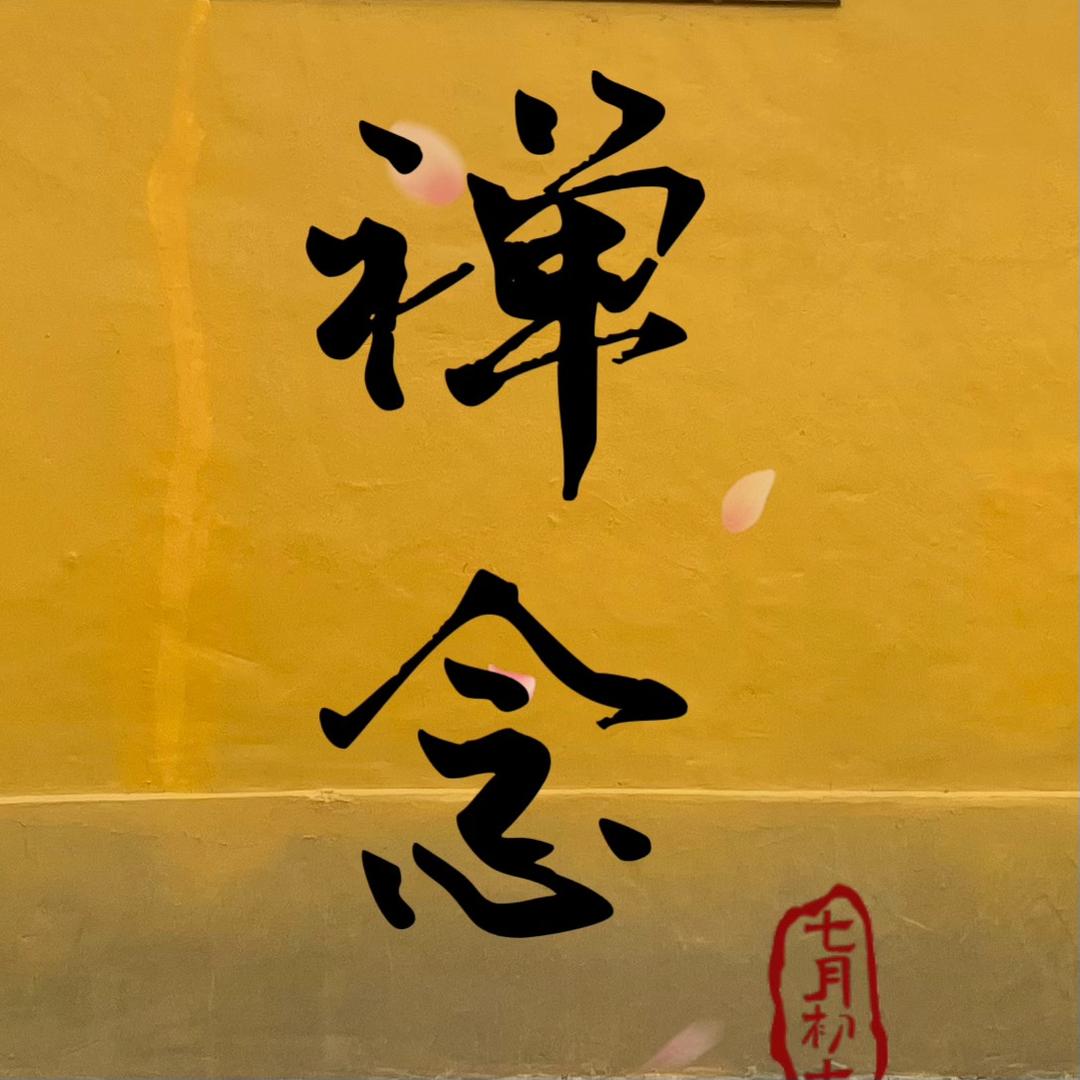 禅
念
七月初